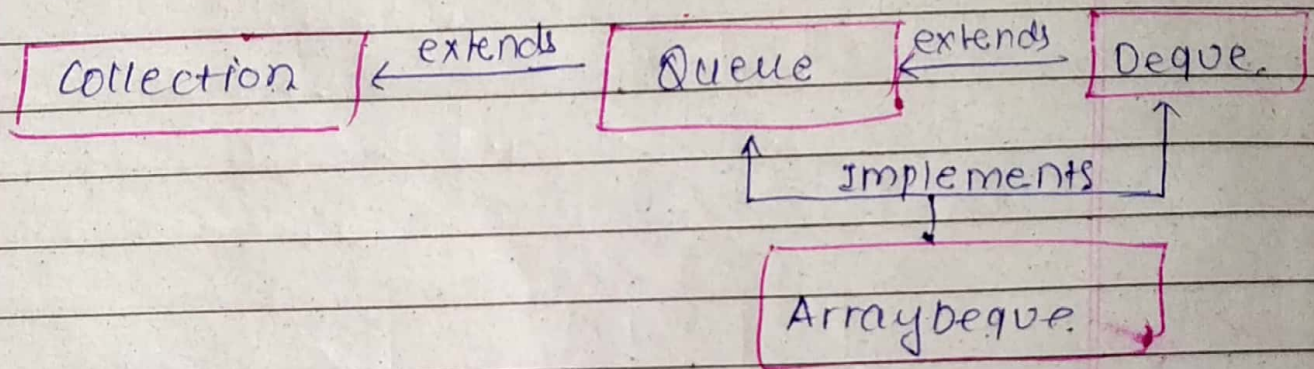 Collection extends Queue extends Deque.
Implements
ArrayDeque.